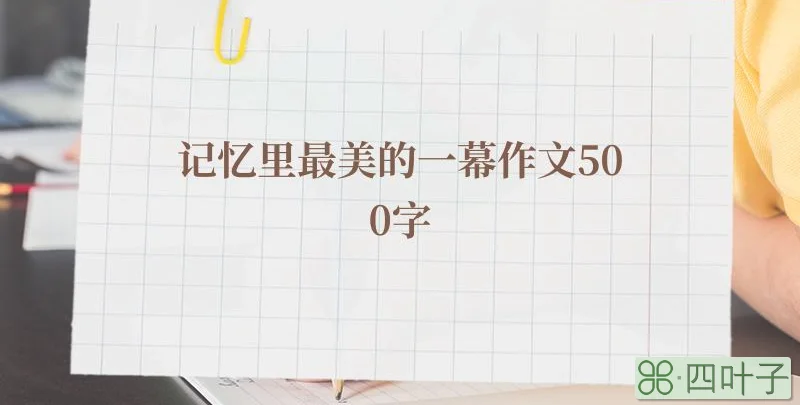 记忆里最美的一幕作文50
0字
四叶子